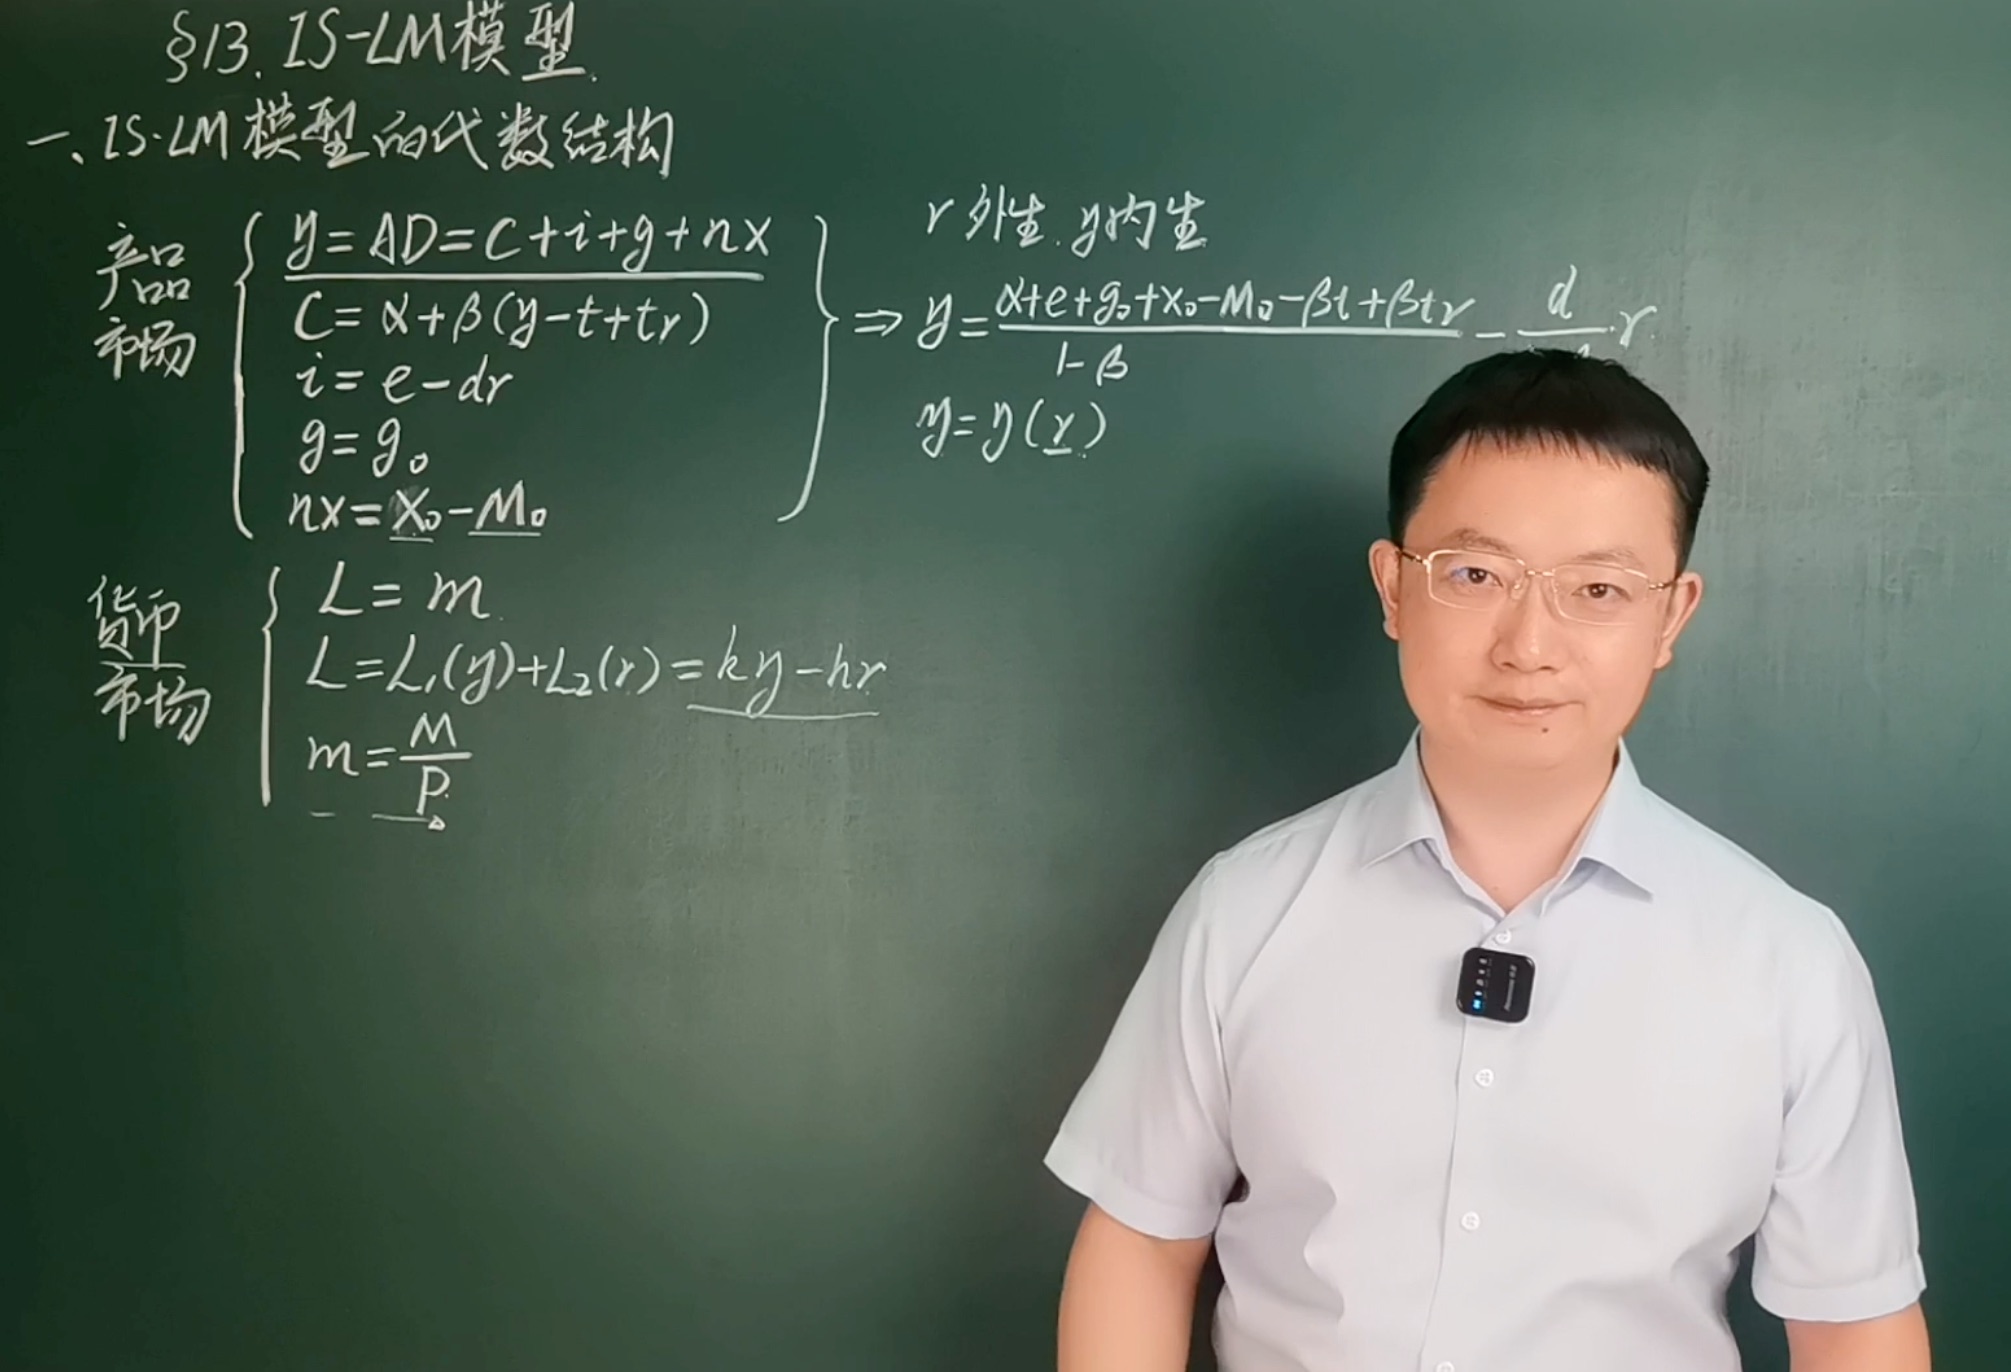 §13. IS-LM模型.
一、IS-LM模型的代数结构
产品
市场
y=AD=C+i+g+nx
C=α+β(y-t+tr)
i=e-dr
g=g₀
nx=X₀-M₀
⇒
r外生.y内生
y=(α+e+g₀+X₀-M₀-βt+βtr)/(1-β) - d/ ·r.
y=y(r)
货币
市场
L=m.
L=L₁(y)+L₂(r)=ky-hr
m=M/P